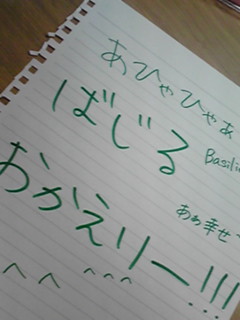 あひゃひゃあ
ばじる
Basili
おかえりー!!!
あぁ幸せ
^ ^ ^^^